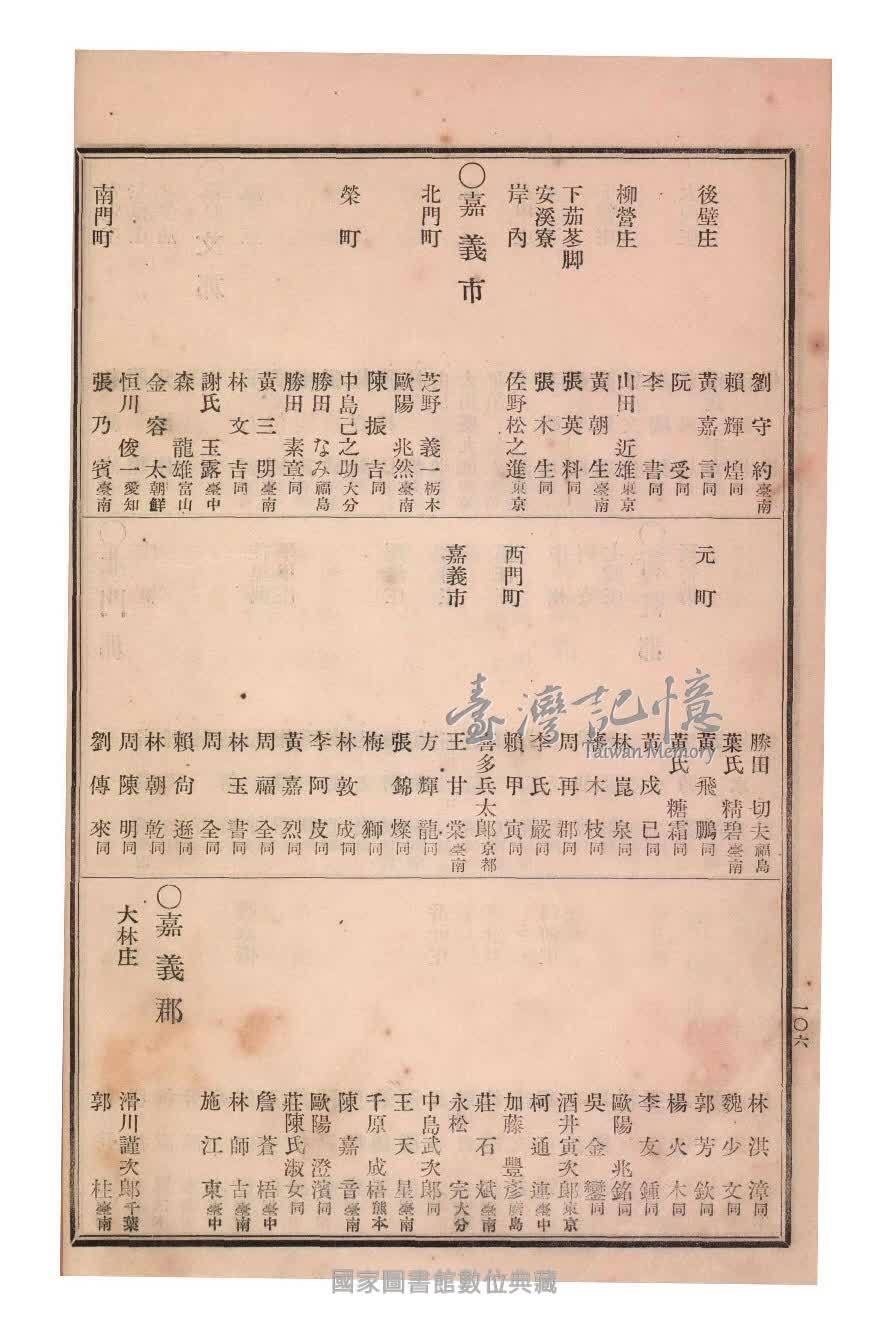 劉守約臺南
後壁庄 賴輝煌同
黃嘉言同
阮受同
李書同
柳營庄 山田近雄東京
黃朝生臺南
下茄苳脚 張英料同
安溪寮 張木生同
岸內 佐野松之進東京
〇嘉義市
北門町 芝野義一栃木
歐陽兆然臺南
陳振吉同
榮町 中島己之助大分
勝田なみ福島
勝田素章同
黃三明臺南
林文吉同
謝氏玉露臺中
森龍雄富山
金容太朝鮮
恒川俊一愛知
南門町 張乃賓臺南
勝田切夫福島
葉氏精碧臺南
元町 黃飛鵬同
黃氏糖霜同
黃戍巳同
林崑泉同
木枝同
周再郡同
李氏嚴同
西門町 賴甲寅同
喜多兵太郞京都
嘉義市 王甘棠臺南
方輝龍同
張錦燦同
梅獅同
林敦成同
李阿皮同
黃嘉烈同
周福全同
林玉書同
周全同
賴尙遜同
林朝乾同
周陳明同
劉傳來同
林洪漳同
魏少文同
郭芳欽同
楊火木同
李友鍾同
歐陽兆銘同
吳金鑾同
酒井寅次郞東京
柯通連臺中
加藤豐彥廣島
莊石斌臺南
永松完大分
中島武次郞同
王天星臺南
千原成梧熊本
陳嘉音臺南
歐陽澄濱同
莊陳氏淑女同
詹蒼梧臺中
林師古臺南
施江東臺中
〇嘉義郡
大林庄 滑川謹次郞千葉
郭桂臺南
一〇六
臺灣記憶
Taiwan Memory
國家圖書館數位典藏